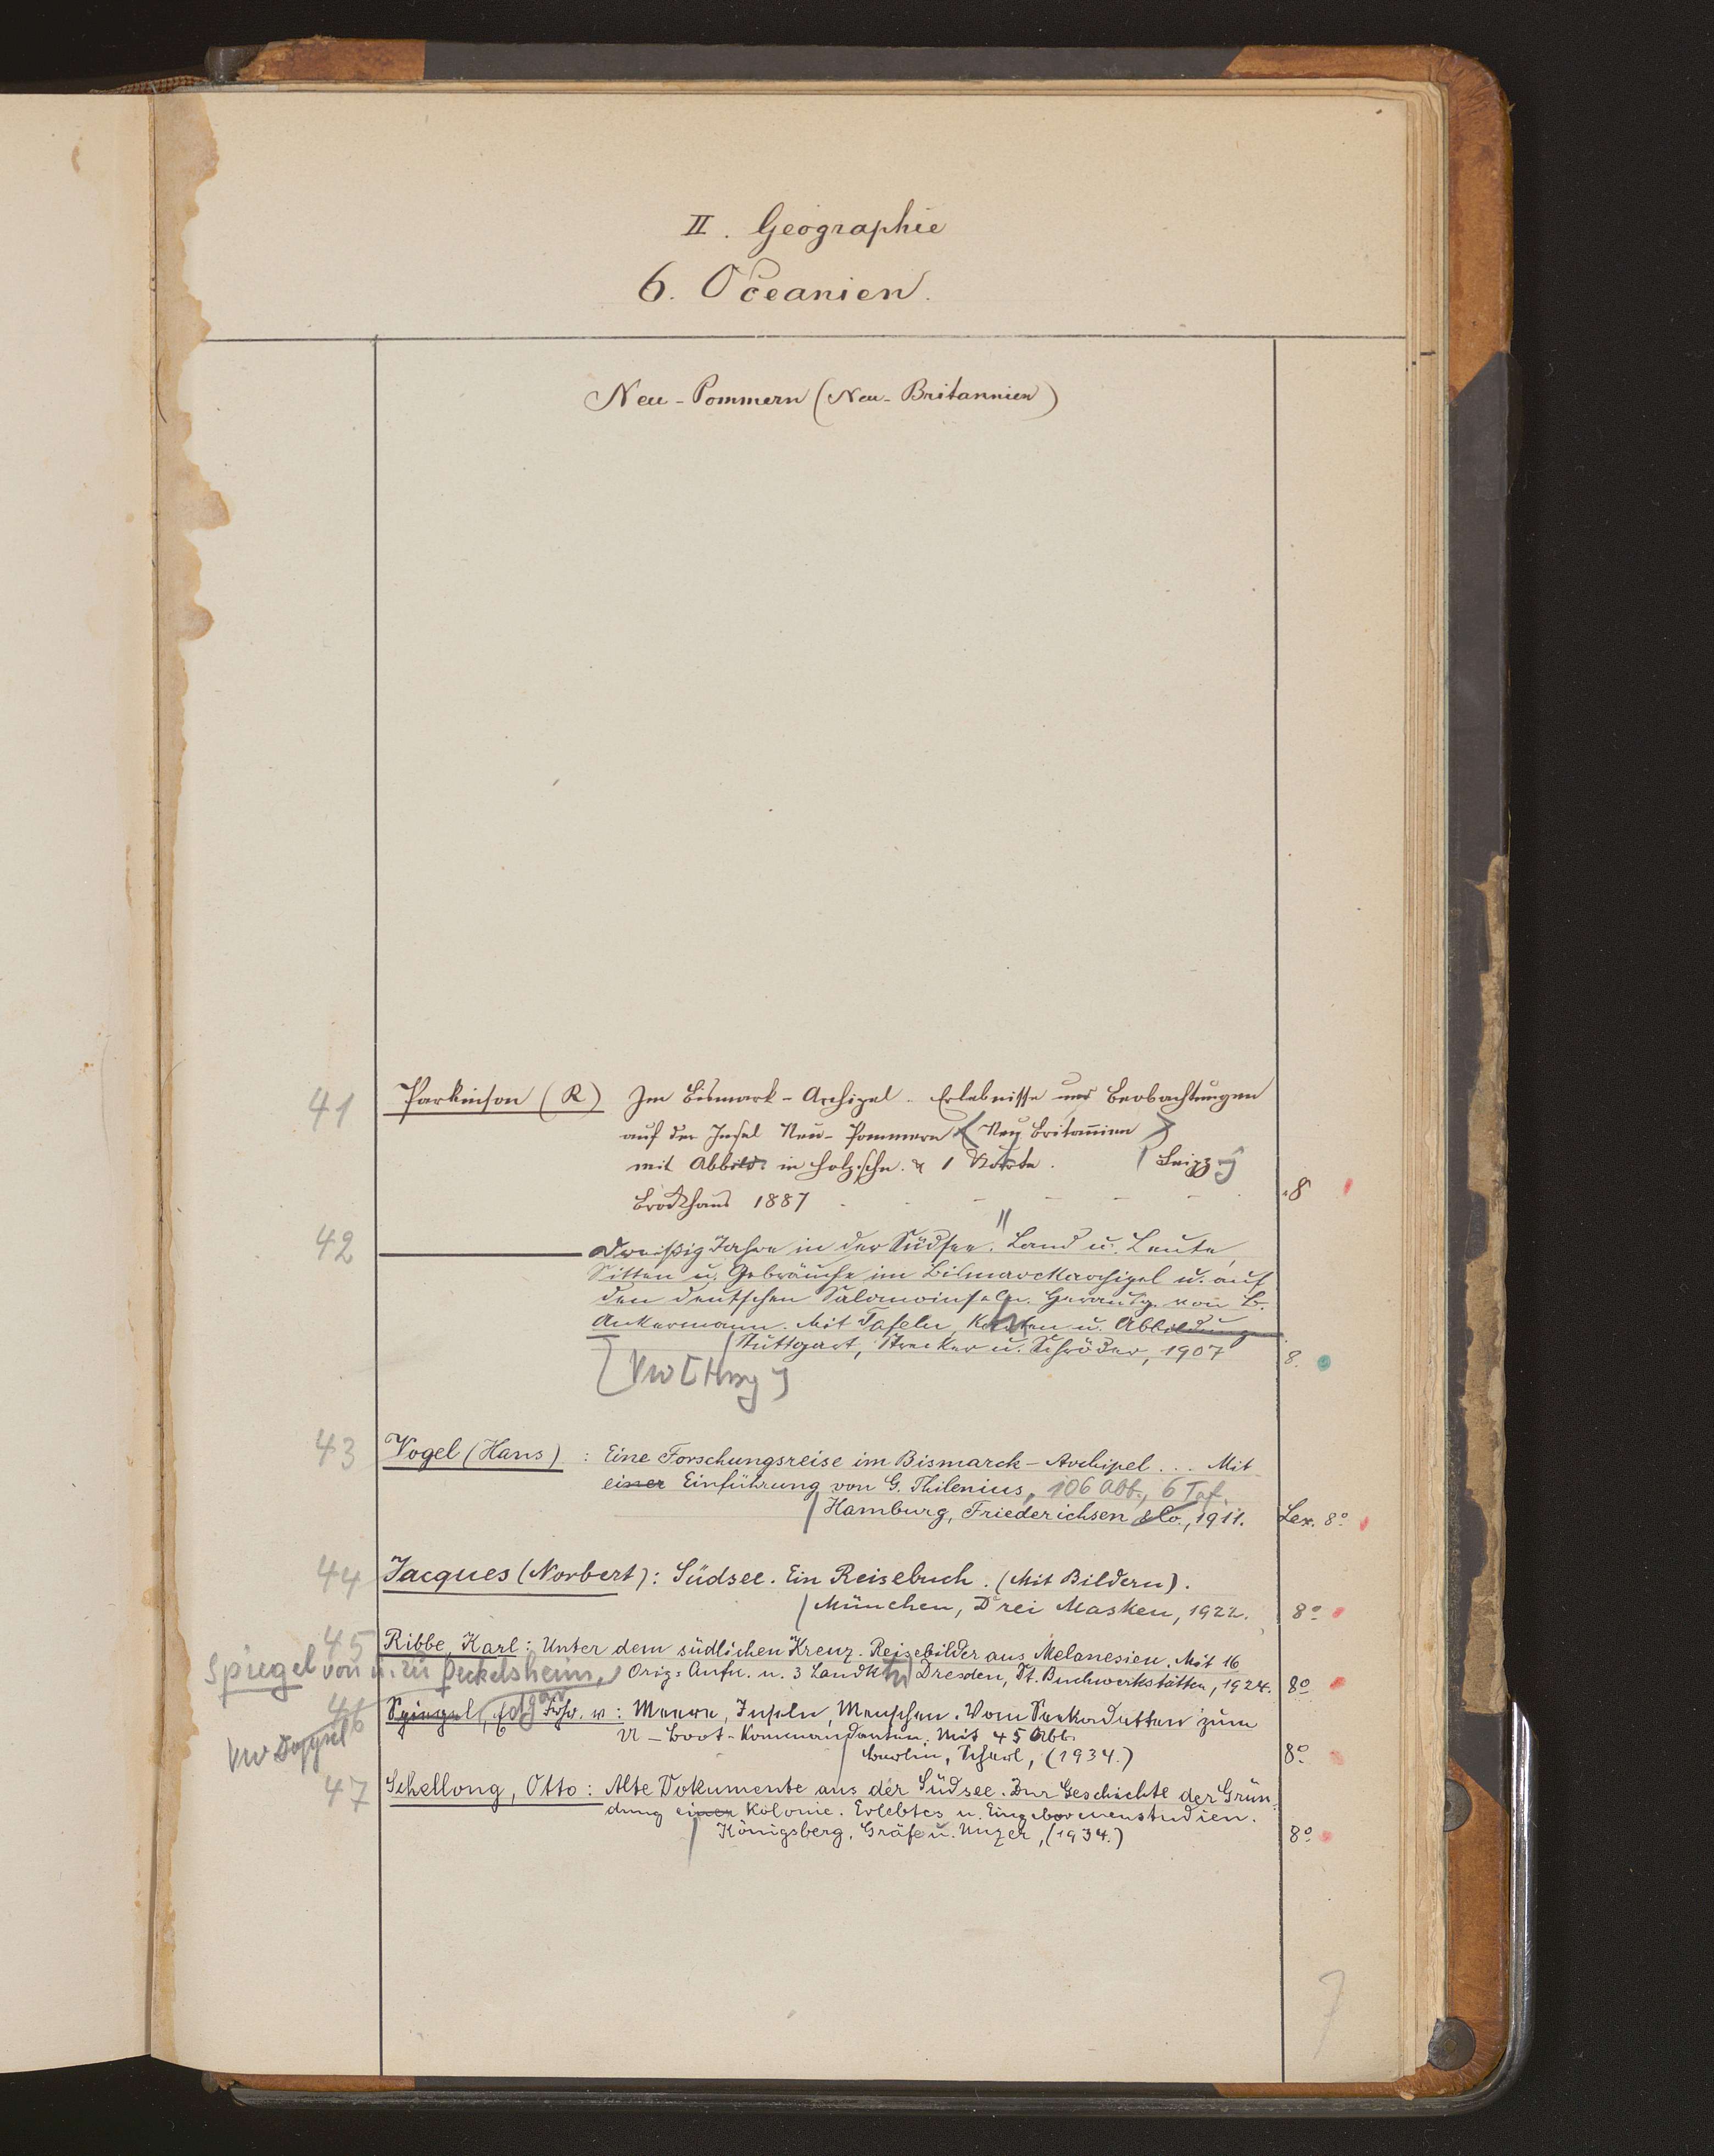 II. Geographie
6. Oceanien.
Neu-Pommern (Neu-Britannien)
41 Parkinson (R) Im Bismark-Archipel. Erlebnisse und Beobachtungen
auf der Insel Neu-Pommern (Neu Britannien)
mit Abbild. in Holzschn. & 1 Karte. Leipzg
Brockhaus 1887 8
42 Dreißig Jahre in der Südsee. Land u. Leute,
Sitten u. Gebräuche im Bismarckarchipel u. auf
den deutschen Salomoinseln. Herausg. von B.
Ankermann. Mit Tafeln, Karten u. Abbildung
Stuttgart, Strecker u. Schröder, 1907 8.
[Vw [Hrsg]
43 Vogel (Hans): Eine Forschungsreise im Bismarck-Archipel... Mit
einer Einführung von G. Thilenius, 106 Abb., 6 Taf.
Hamburg, Friederichsen & Co., 1911. Lex. 8°
44 Jacques (Norbert): Südsee. Ein Reisebuch. (Mit Bildern).
München, Drei Masken, 1922. 8°
45 Ribbe, Karl: Unter dem südlichen Kreuz. Reisebilder aus Melanesien. Mit 16
Orig=Aufn. u. 3 Landktn Dresden, Dt. Buchwerkstätten, 1924. 8°
Spiegel von u. zu Peckelsheim, Edgar
46 Spiegel, Frhr. v: Meere, Inseln, Menschen. Vom Seekadetten zum
U-Boot-Kommandanten. Mit 45 Abb.
Berlin, Scherl, (1934.) 8°
47 Schellong, Otto: Alte Dokumente aus der Südsee. Zur Geschichte der Grün-
dung einer Kolonie. Erlebtes u. Eingeborenenstudien.
Königsberg, Gräfe u. Unzer, (1934.) 8°
7